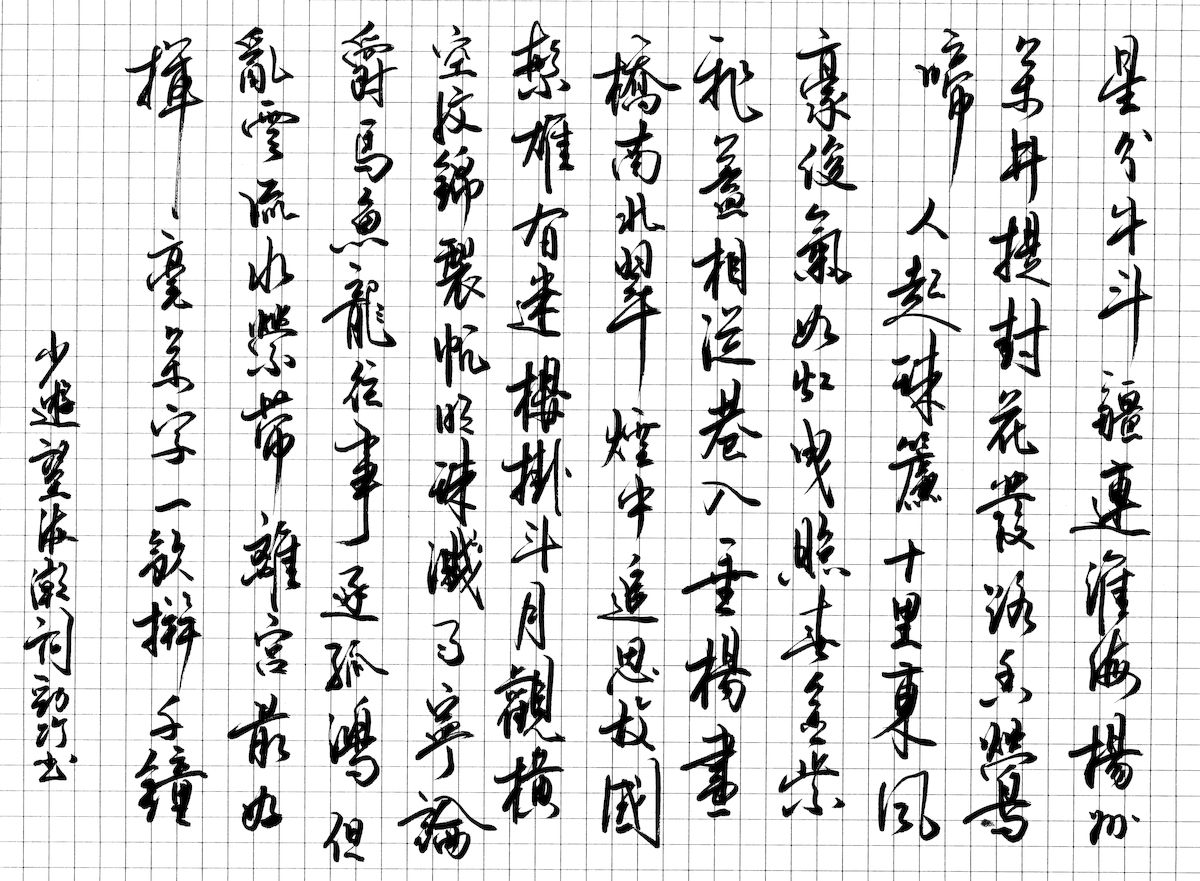 星分牛斗疆連淮海楊州
萬井提封花發路香鶯
啼人起珠簾十里東風
豪俊氣如虹曳照春金紫
飛蓋相從巷入垂楊畫
橋南北翠煙中追思故國
繁雄有迷樓掛斗月觀橫
空紋錦製帆明珠濺雨寧論
爵馬魚龍往事逐孤鴻但
亂雲流水縈帶離宮最好
揮毫萬字一飲拚千鐘
少遊望海潮詞勁竹書